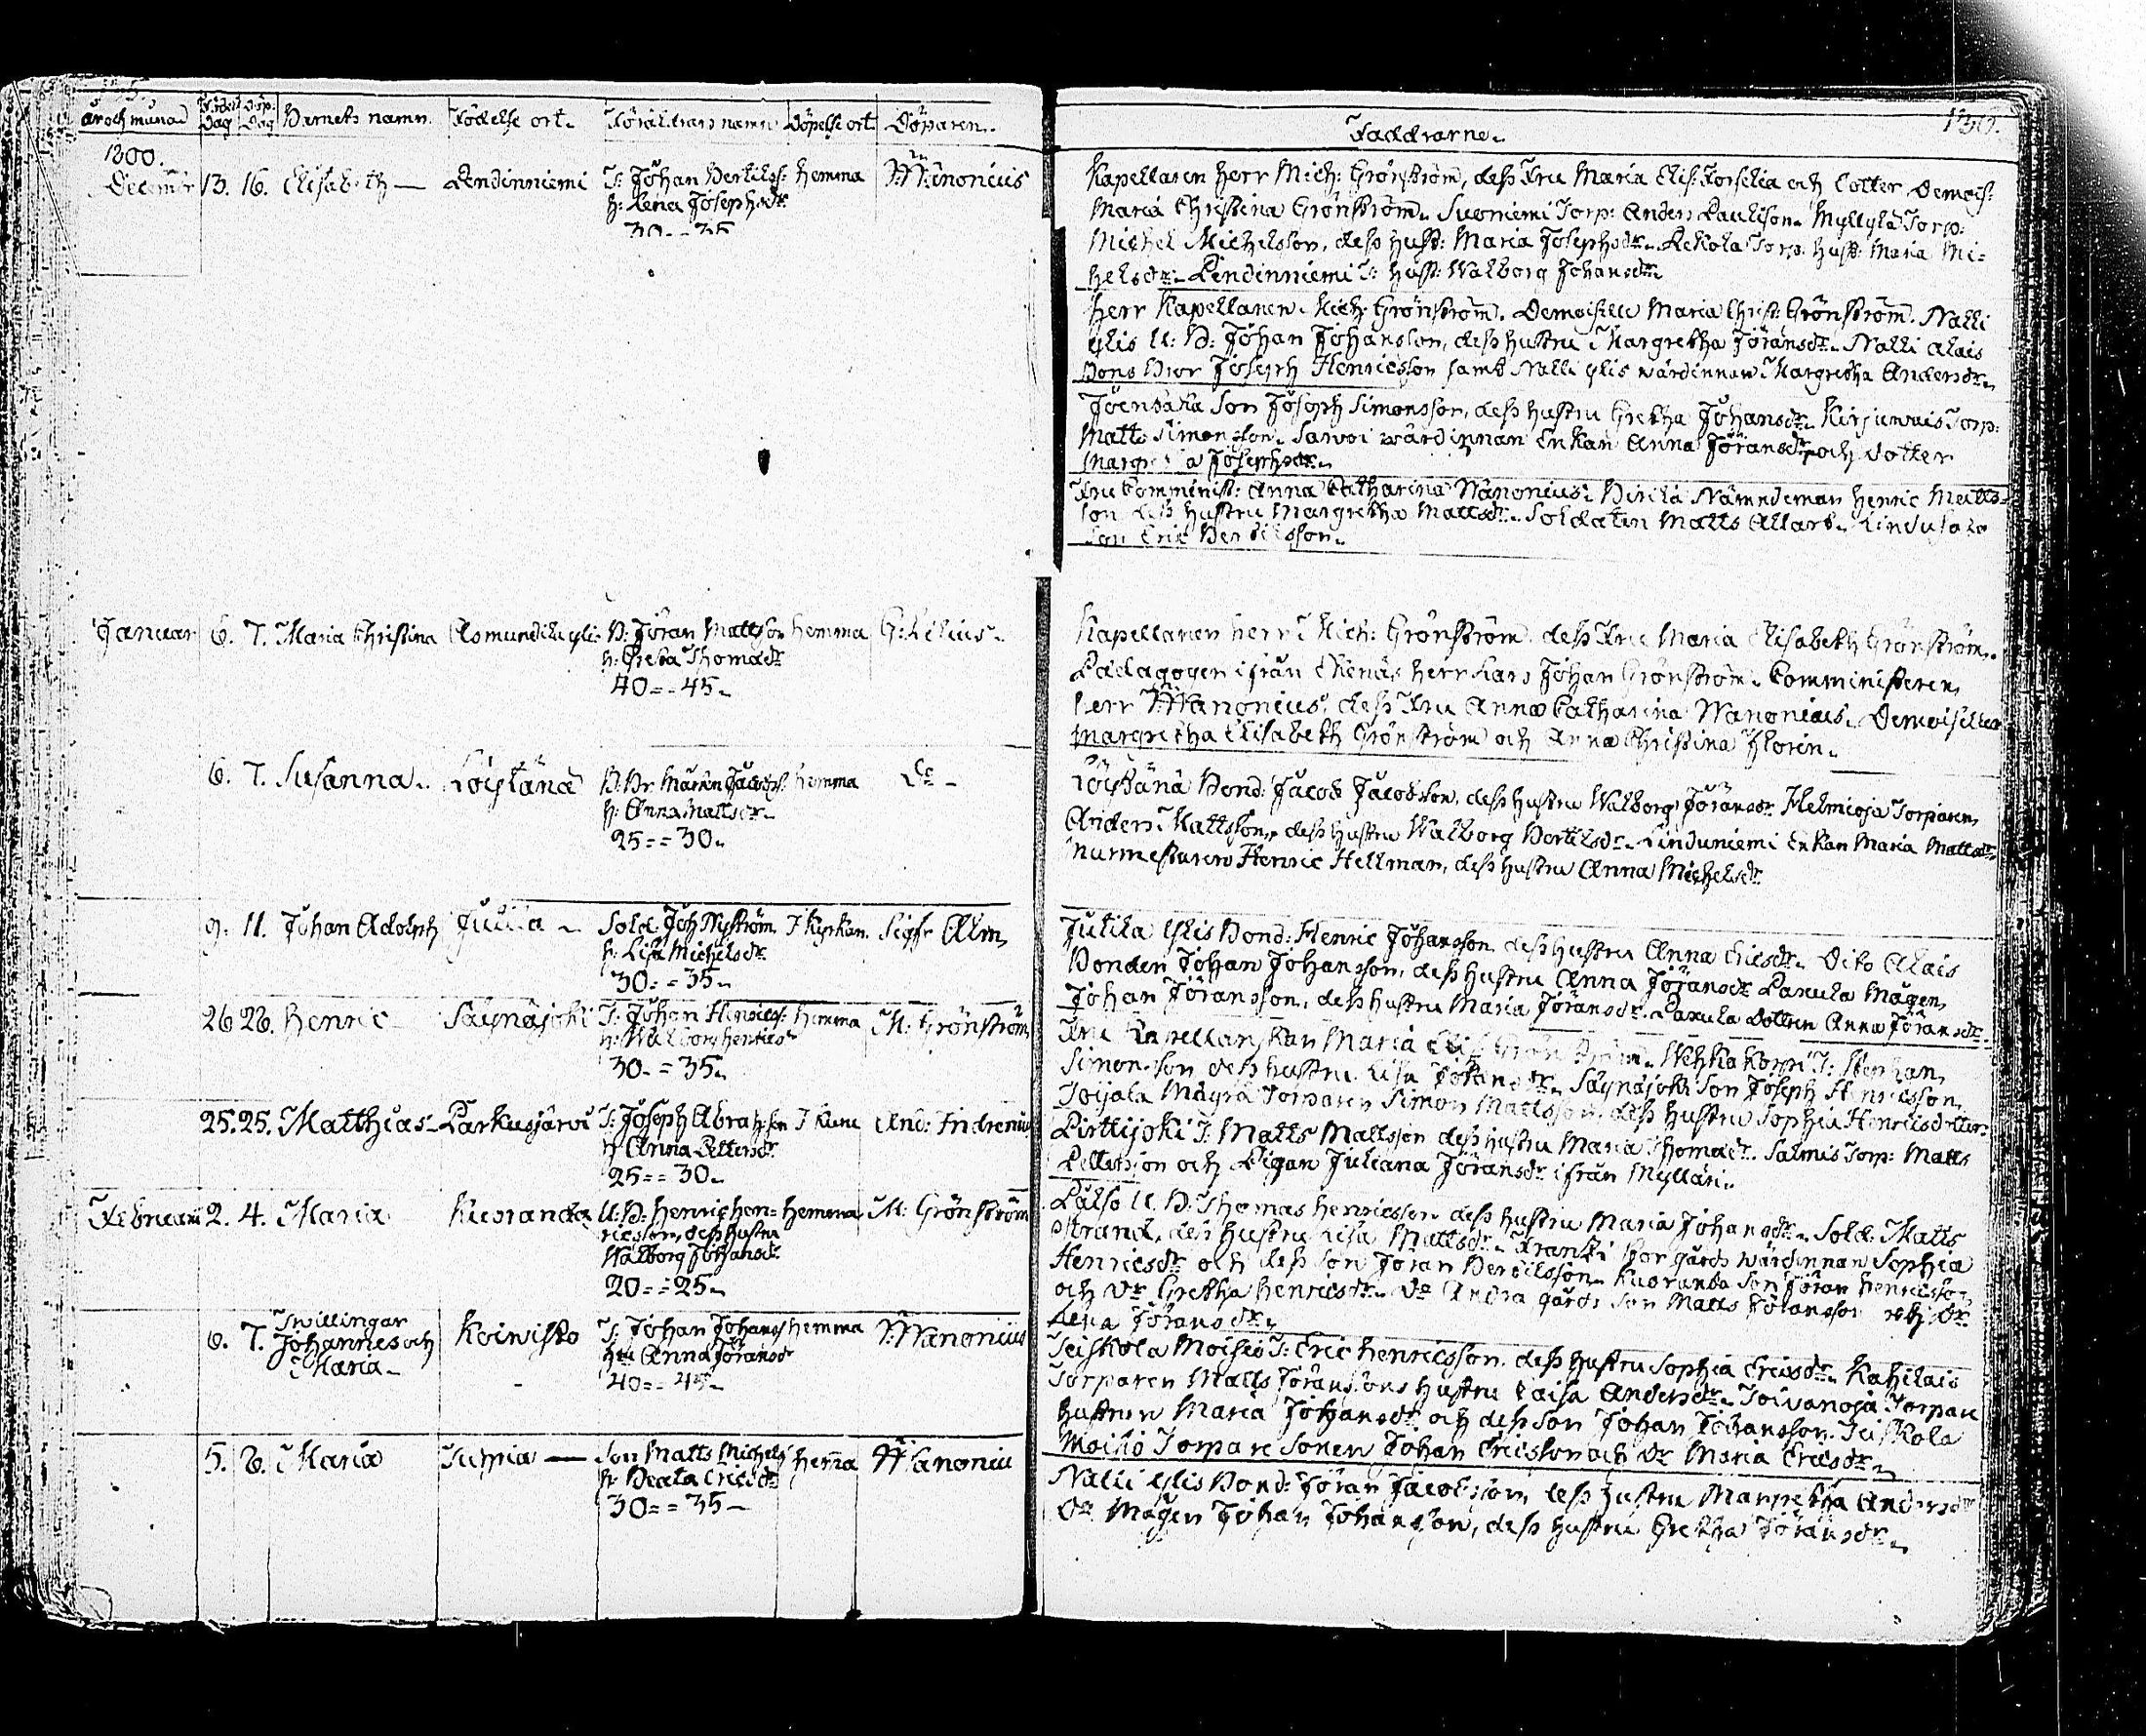 år och månad Född Dag Döp. Dag Barnets namn. Födelse ort. Föräldrars namn Döpelse ort Döparen.
1800.
December 13. 16. Elisabeth — Lendinniemi T: Johan Bertilss: hemma Wänonius
h: Lena Josephsdr
30 - - 35
Januar 6. 7. Maria Christina Asmundila ylis B: Jöran Mattsson hemma G: Lilius.
h: Greta Thomadr
40 = - 45.
6. 7. Susanna. Löystänä B. Br. Mårten Jacobs: hemma Do -
h: Anna Mattsdr.
25 = = 30.
9. 11. Johan Adolph Sold. Joh Nyström I Kyrkan. Sigfr Alm,
h: Lisa Michelsdr
30. = 35.
26 26. Henric Säynäjoki T: Johan Henrics: hemma M: Grönström,
h: Walborg henricsdr
30. = 35.
25. 25. Matthias - Parkusjärvi T: Joseph Abrahsson And: Indrenius
h Anna Pettersdr
25 = = 30.
Februari 2. 4. Maria Kuoranda U. B: Henric hen= hemma M: Grönström
ricsson, dess hustru
Walborg Johansdr
20 = = 25.
6. 7. Twillingar Johannes och Maria. Koivisto T: Johan Johanss hemma Wanonius
hu Anna Jöransdr
40 = - 45.
5. 6. Maria — Son Matts Michels hem̄a Wanoniu
h: Beata Ericsdr
30 = = 35 —
130.
Faddrarne.
Kapellanen Herr Mich: Grönström, dess Fru Maria Elis: Forselia och Dotter Demois:
Maria Christina Grönström. Suoniemi Torp: Anders Paulsson. Myllylä Torp:
Michel Michelsson, dess hust: Maria Josephsdr. Lekola Torp. hust: Maria Mi=
helsdr. Lendinniemi T: hust: Walborg Johansdr.
Herr Kapellanen. Mich: Grönström. Demoiselle Maria Christ: Grönström. Nalli
ylis U: B: Johan Johansson, dess hustru Margretha Jöransdr. Nalli alais
Bons Bror Joseph Henricsson samt Nalli ylis wärdinnan Margretha Andersdr.
Son Joseph Simonsson, dess hustru Gretha Johansdr. Kirjuwais Torp:
Matts Simonsson. Sawoi wärdinnan Enkan Anna Jöransdr och dotter
Margretha Josephsdr.
Fru Comminist: Anna Catharina Wänonius. Nämndeman Henric Matts=
son dess hustru Margretha Mattsdr. Soldaten Matts Allart.
Son Eric Bertilsson.
Kapellanen herr Mich: Grönström. dess Fru Maria Elisabeth Grönström.
Pædagogen ifrån Ekenäs Herr Lars Johan Grönström. Comministeren,
herr Wanonius, dess Fru Anna Catharina Wanonius. Demoisellen
Margretha Elisabeth Grönström och Anna Christina Florin.
Löystänä Bond: Jacob Jacobsson, dess hustru Walborg Jöransdr Helmioja Torparen,
Anders Mattsson, dess hustru Walborg Bertilsdr. Linduniemi Enkan Maria Mattsdr,
Murmestaren Henric Hellman, dess hustru Anna Michelsdr
Jutila Ylis Bond: Henric Johansson dess hustru Anna Ericsdr. Dito Alais
Bonden Johan Johansson, dess hustru Anna Jöransdr Paxula Mågen,
Johan Jöransson, dess hustru Maria Jöransdr. Paxula Dottren Anna Jöransdr.
Fru Kapellanskan Maria Elis Grönström. T: Stephan,
Simonsson dess hustru Lisa Johansdr. Säynäjoki Son Joseph Henricsson,
Toijala Mäyrä Torparen Simon Mattsson. dess hustru Sophia Henricsdotter.
Pirttijoki T: Matts Mattsson dess hustru Maria Thomadr. Salmis Torp: Matts
Pettersson och Pigan Juliana Jöransdr ifrån Myllari.
Pätso U. B. Thomas Henricsson dess hustru Maria Johansdr. Sold: Matts
Strand, dess hustru Lisa Mattsdr. Franti Storgårds wärdinnan Sophia
Henricsdr och dess son Jöran Bertilsson. Kuoranda Son Jöran Henricsson,
och Dr Gretha Henricsdr. Do Andra gårds Son Matts Jöransson och Dr.
Lena Jöransdr.
Teiskola Moisio T: Eric Henricsson. dess hustru Sophia Ericsdr. Kahilais
Torparen Matts Jöranssons hustru Caisa Andersdr. Toivanoja Torpare
hustrun Maria Johansdr och dess son Johan Johansson. Teiskola
Moisio Torpare Sonen Johan Ericsson och Dr Maria Ericsdr.
Nalli Ylis Bond: Jöran Jacobsson, dess hustru Margretha Andersdr
Do Mågen Johan Johansson, dess hustru Gretha Jöransdr.